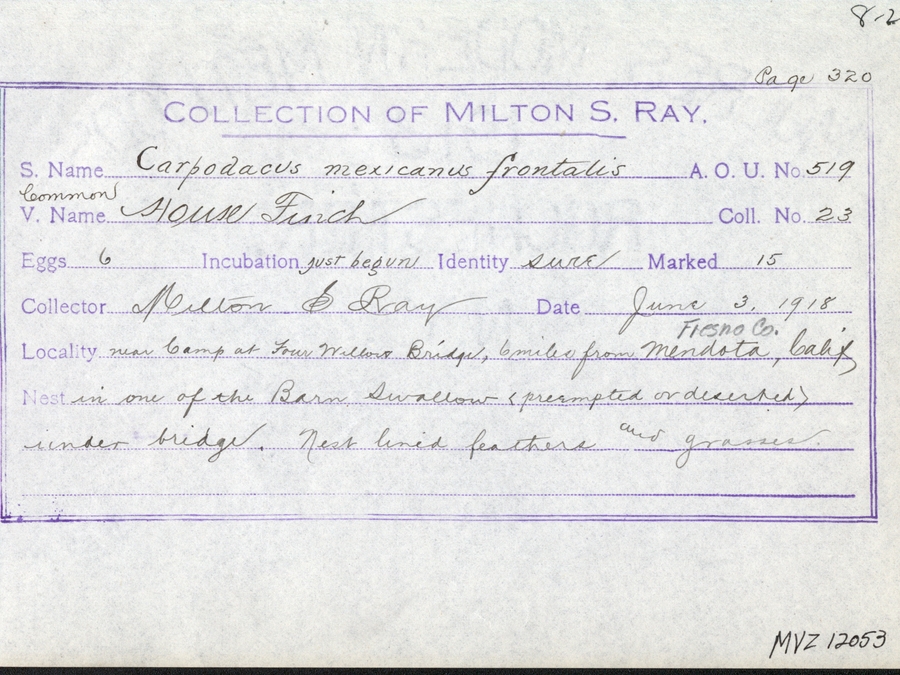 8-2
Page 320
COLLECTION OF MILTON S. RAY.
S. Name Carpodacus mexicanus frontalis A. O. U. No. 519
Common
V. Name House Finch Coll. No. 23
Eggs 6 Incubation just begun Identity sure Marked 15
Collector Milton S Ray Date June 3, 1918
Fresno Co.
Locality near Camp at Four Willow Bridge, 6 miles from Mendota, Calif
Nest in one of the Barn Swallow (preempted or deserted)
under bridge. Nest lined feathers and grasses.
MVZ 12053